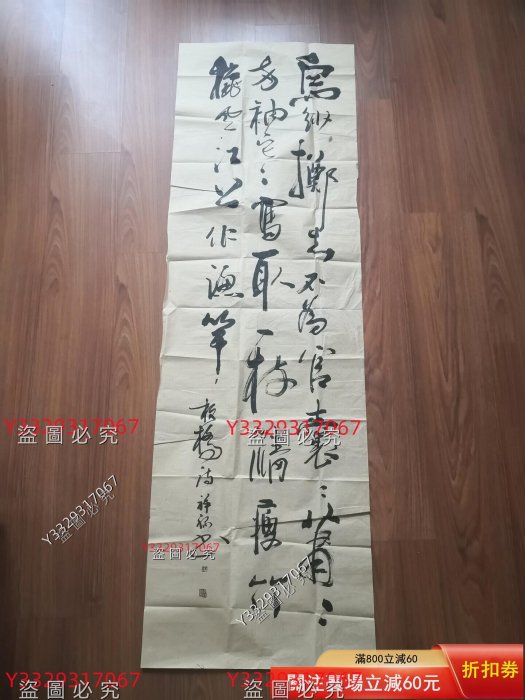 烏紗擲去不為官囊〻蕭〻
兩袖空〻寫取一枝清瘦竹
江上作漁竿
板橋詩
Y3329317067
盜圖必究
Y3329317067
盜圖必究
Y3329317067
盜圖必究
Y3329317067
盜圖必究
Y3329317067
盜圖必究
Y3329317067
盜圖必究
Y3329317067
盜圖必究
滿800立減60
關注賣場立減60元
折扣券